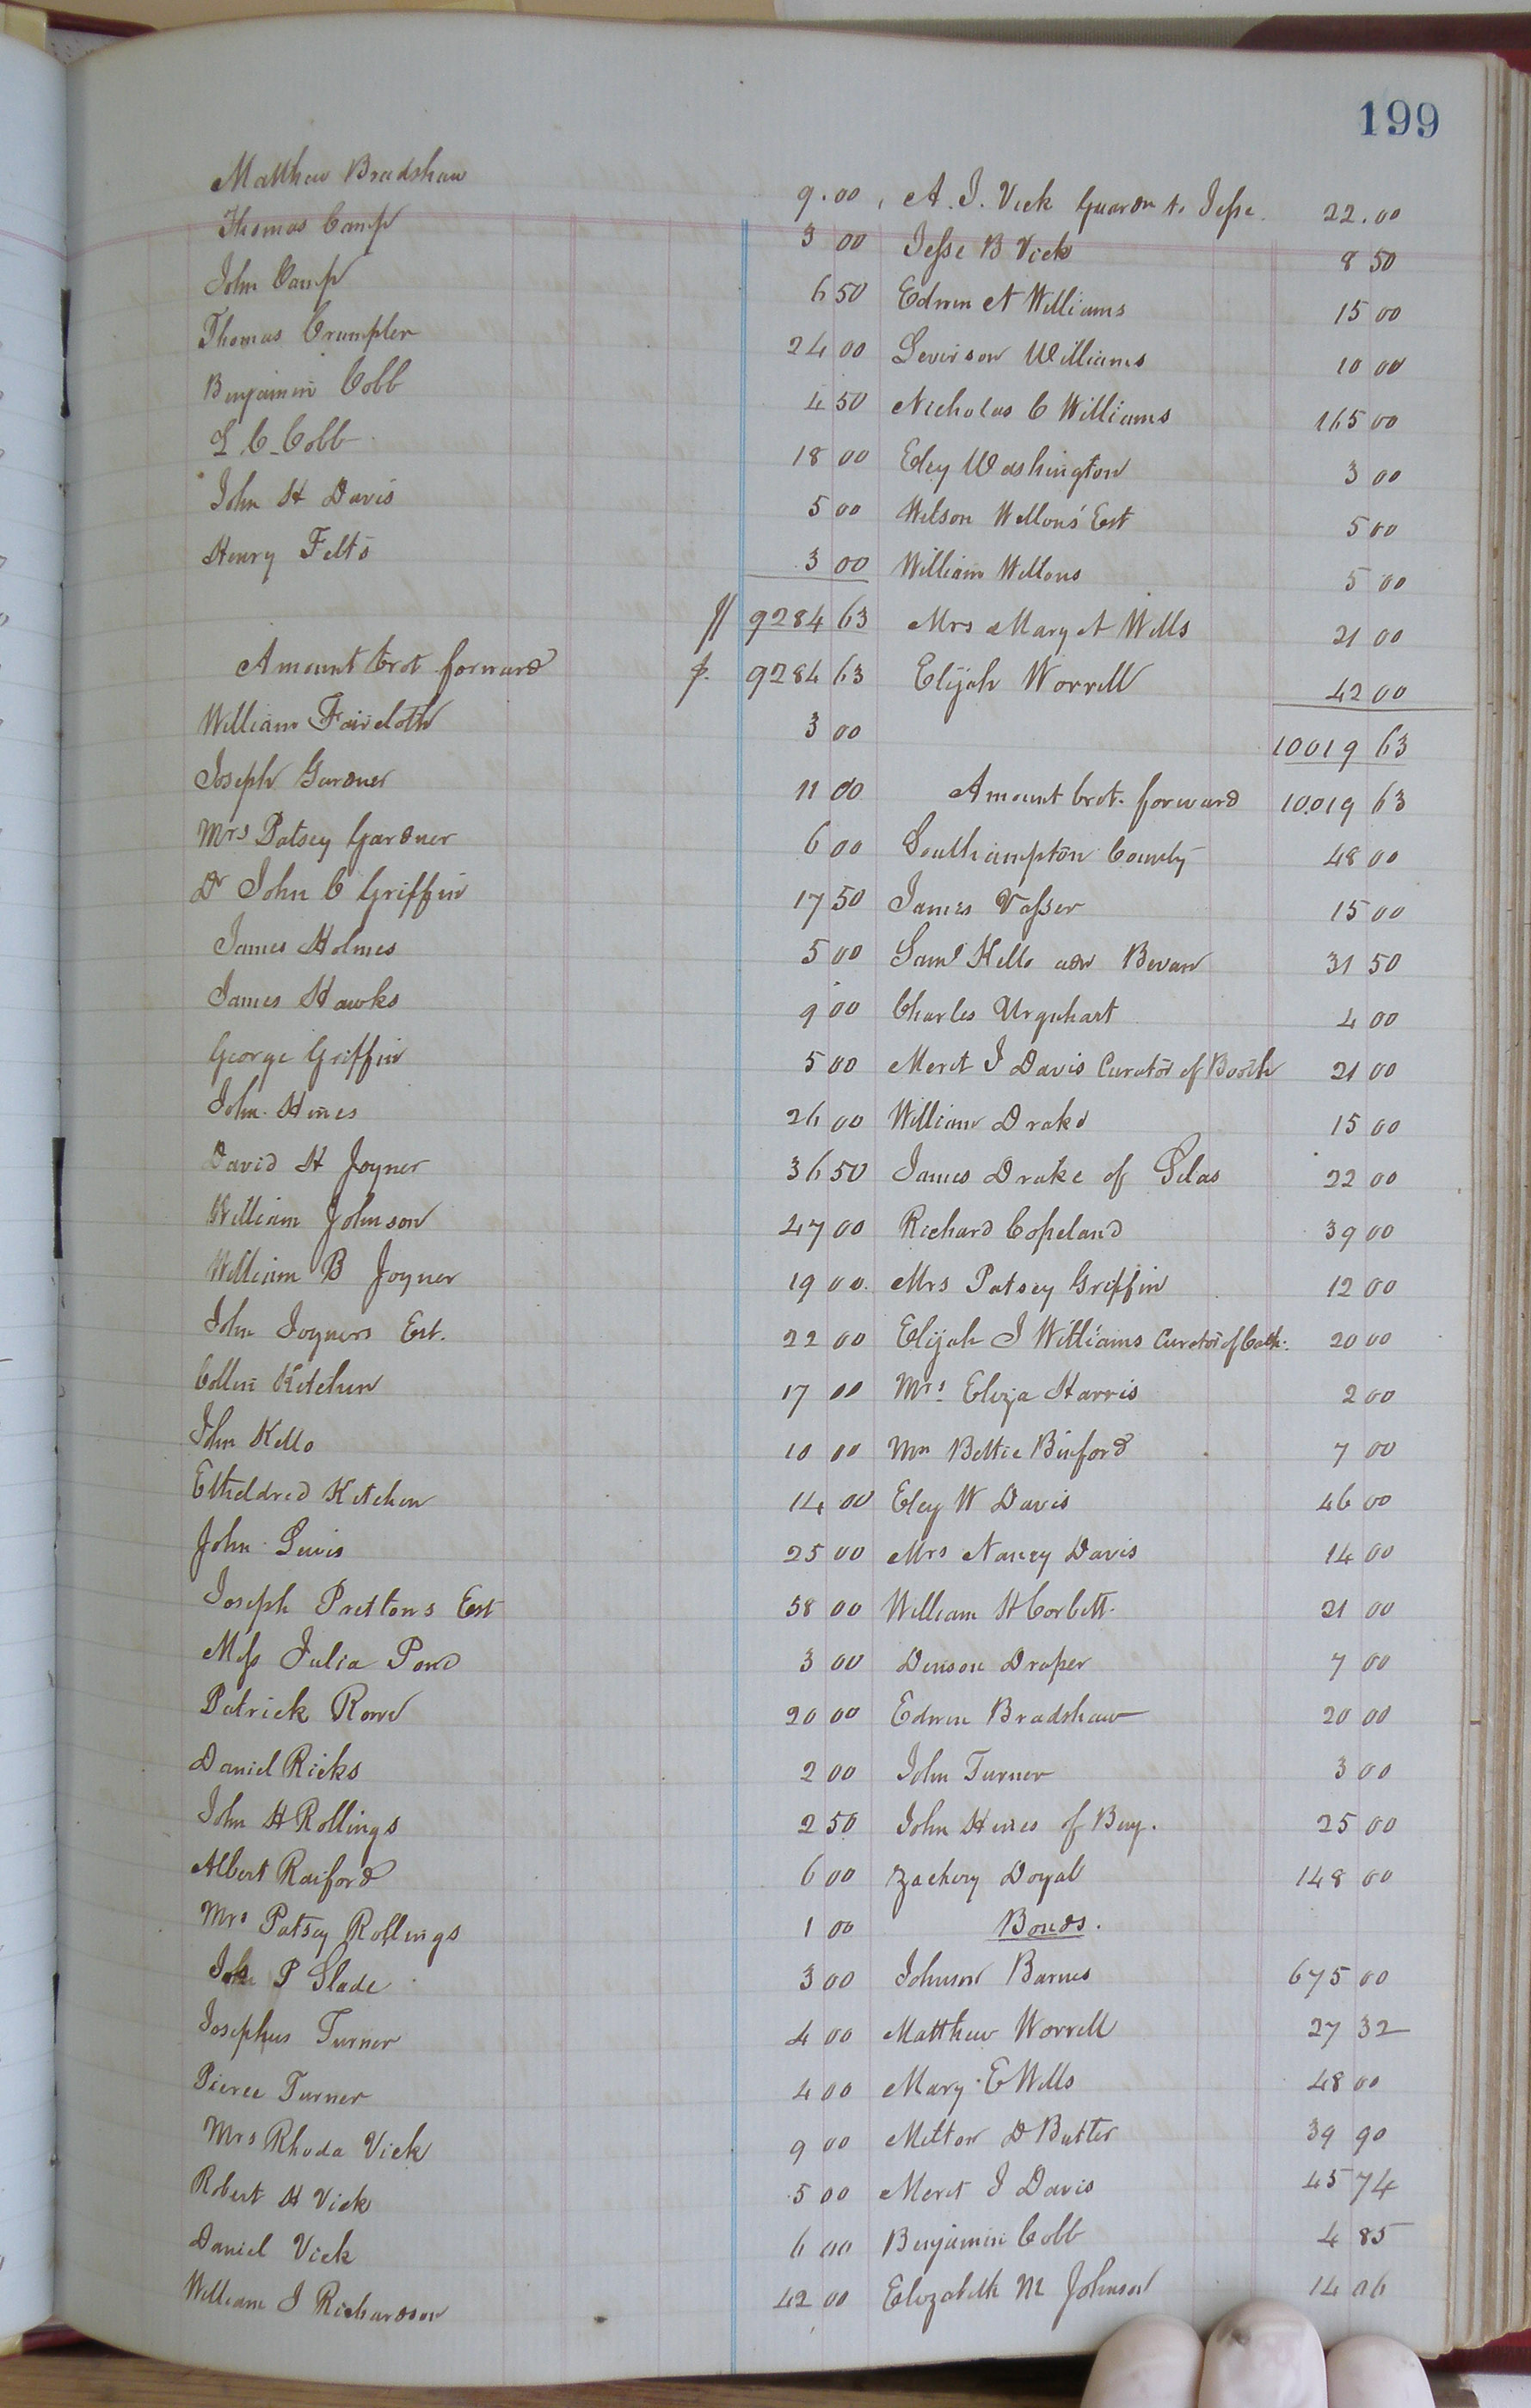 199
Matthew Bradshaw 9.00
Thomas Camp 3 00
John Camp 6 50
Thomas Crumpler 24 00
Benjamin Cobb 4 50
L C. Cobb 18 00
John H Davis 5 00
Henry Felts 3 00
9284 63
Amount brot forward $. 9284 63
William Faircloth 3 00
Joseph Gardner 11 00
Mrs Patsey Gardner 6 00
Dr John C Griffin 17 50
James Holmes 5 00
James Hawks 9 00
George Griffin 5 00
John Hines 26 00
David H Joyner 36 50
William Johnson 47 00
William B Joyner 19 00.
John Joyners Est. 22 00
Collin Kitchen 17 00
John Kello 10 00
Etheldred Kitchen 14 00
John Lewis 25 00
Joseph Prettons Est 58 00
Miss Julia Pond 3 00
Patrick Rowe 20 00
Daniel Ricks 2 00
John H Rollings 2 50
Albert Raiford 6 00
Mrs Patsey Rollings 1 00
P Slade 3 00
Josephus Turner 4 00
Pierce Turner 4 00
Mrs Rhoda Vick 9 00
Robert H Vick 5 00
Daniel Vick 6 00
William J Richardson 42 00
A. J. Vick Guardn to Jesse. 22.00
Jesse B Vick 8 50
Edwin A Williams 15 00
Levirson Williams 10 00
Nicholas C Williams 165 00
Eley Washington 3 00
Wilson Wellons' Est 5 00
William Wellons 5 00
Mrs Mary A Wills 21 00
Elijah Worrell 42 00
10019 63
Amount brot. forward 10.019 63
Southampton County 48 00
James Vasser 15 00
Saml Kello adr Bevan 31 50
Charles Urquhart 4 00
Merit J Davis Curator of Booth 21 00
William Drake 15 00
James Drake of Silas 22 00
Richard Copeland 39 00
Mrs Patsey Griffin 12 00
Elijah J Williams Curator of Cath. 20 00
Mrs. Eliza Harris 2 00
Mrs Bettie Binford 7 00
Eley W Davis 46 00
Mrs Nancy Davis 14 00
William H Corbett. 21 00
Denson Draper 7 00
Edwin Bradshaw 20 00
John Turner 3 00
John Hines of Benj. 25 00
Zachery Doyal 148 00
Bonds.
Johnson Barnes 675 00
Matthew Worrell 27 32
Mary E Wills 48 00
Milton D Butler 39 90
Merit J Davis 45 74
Benjamin Cobb 4 85
Elizabeth M Johnson 14 06